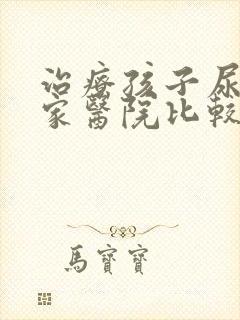 治療孩子尿
家醫院比較
馬寶寶